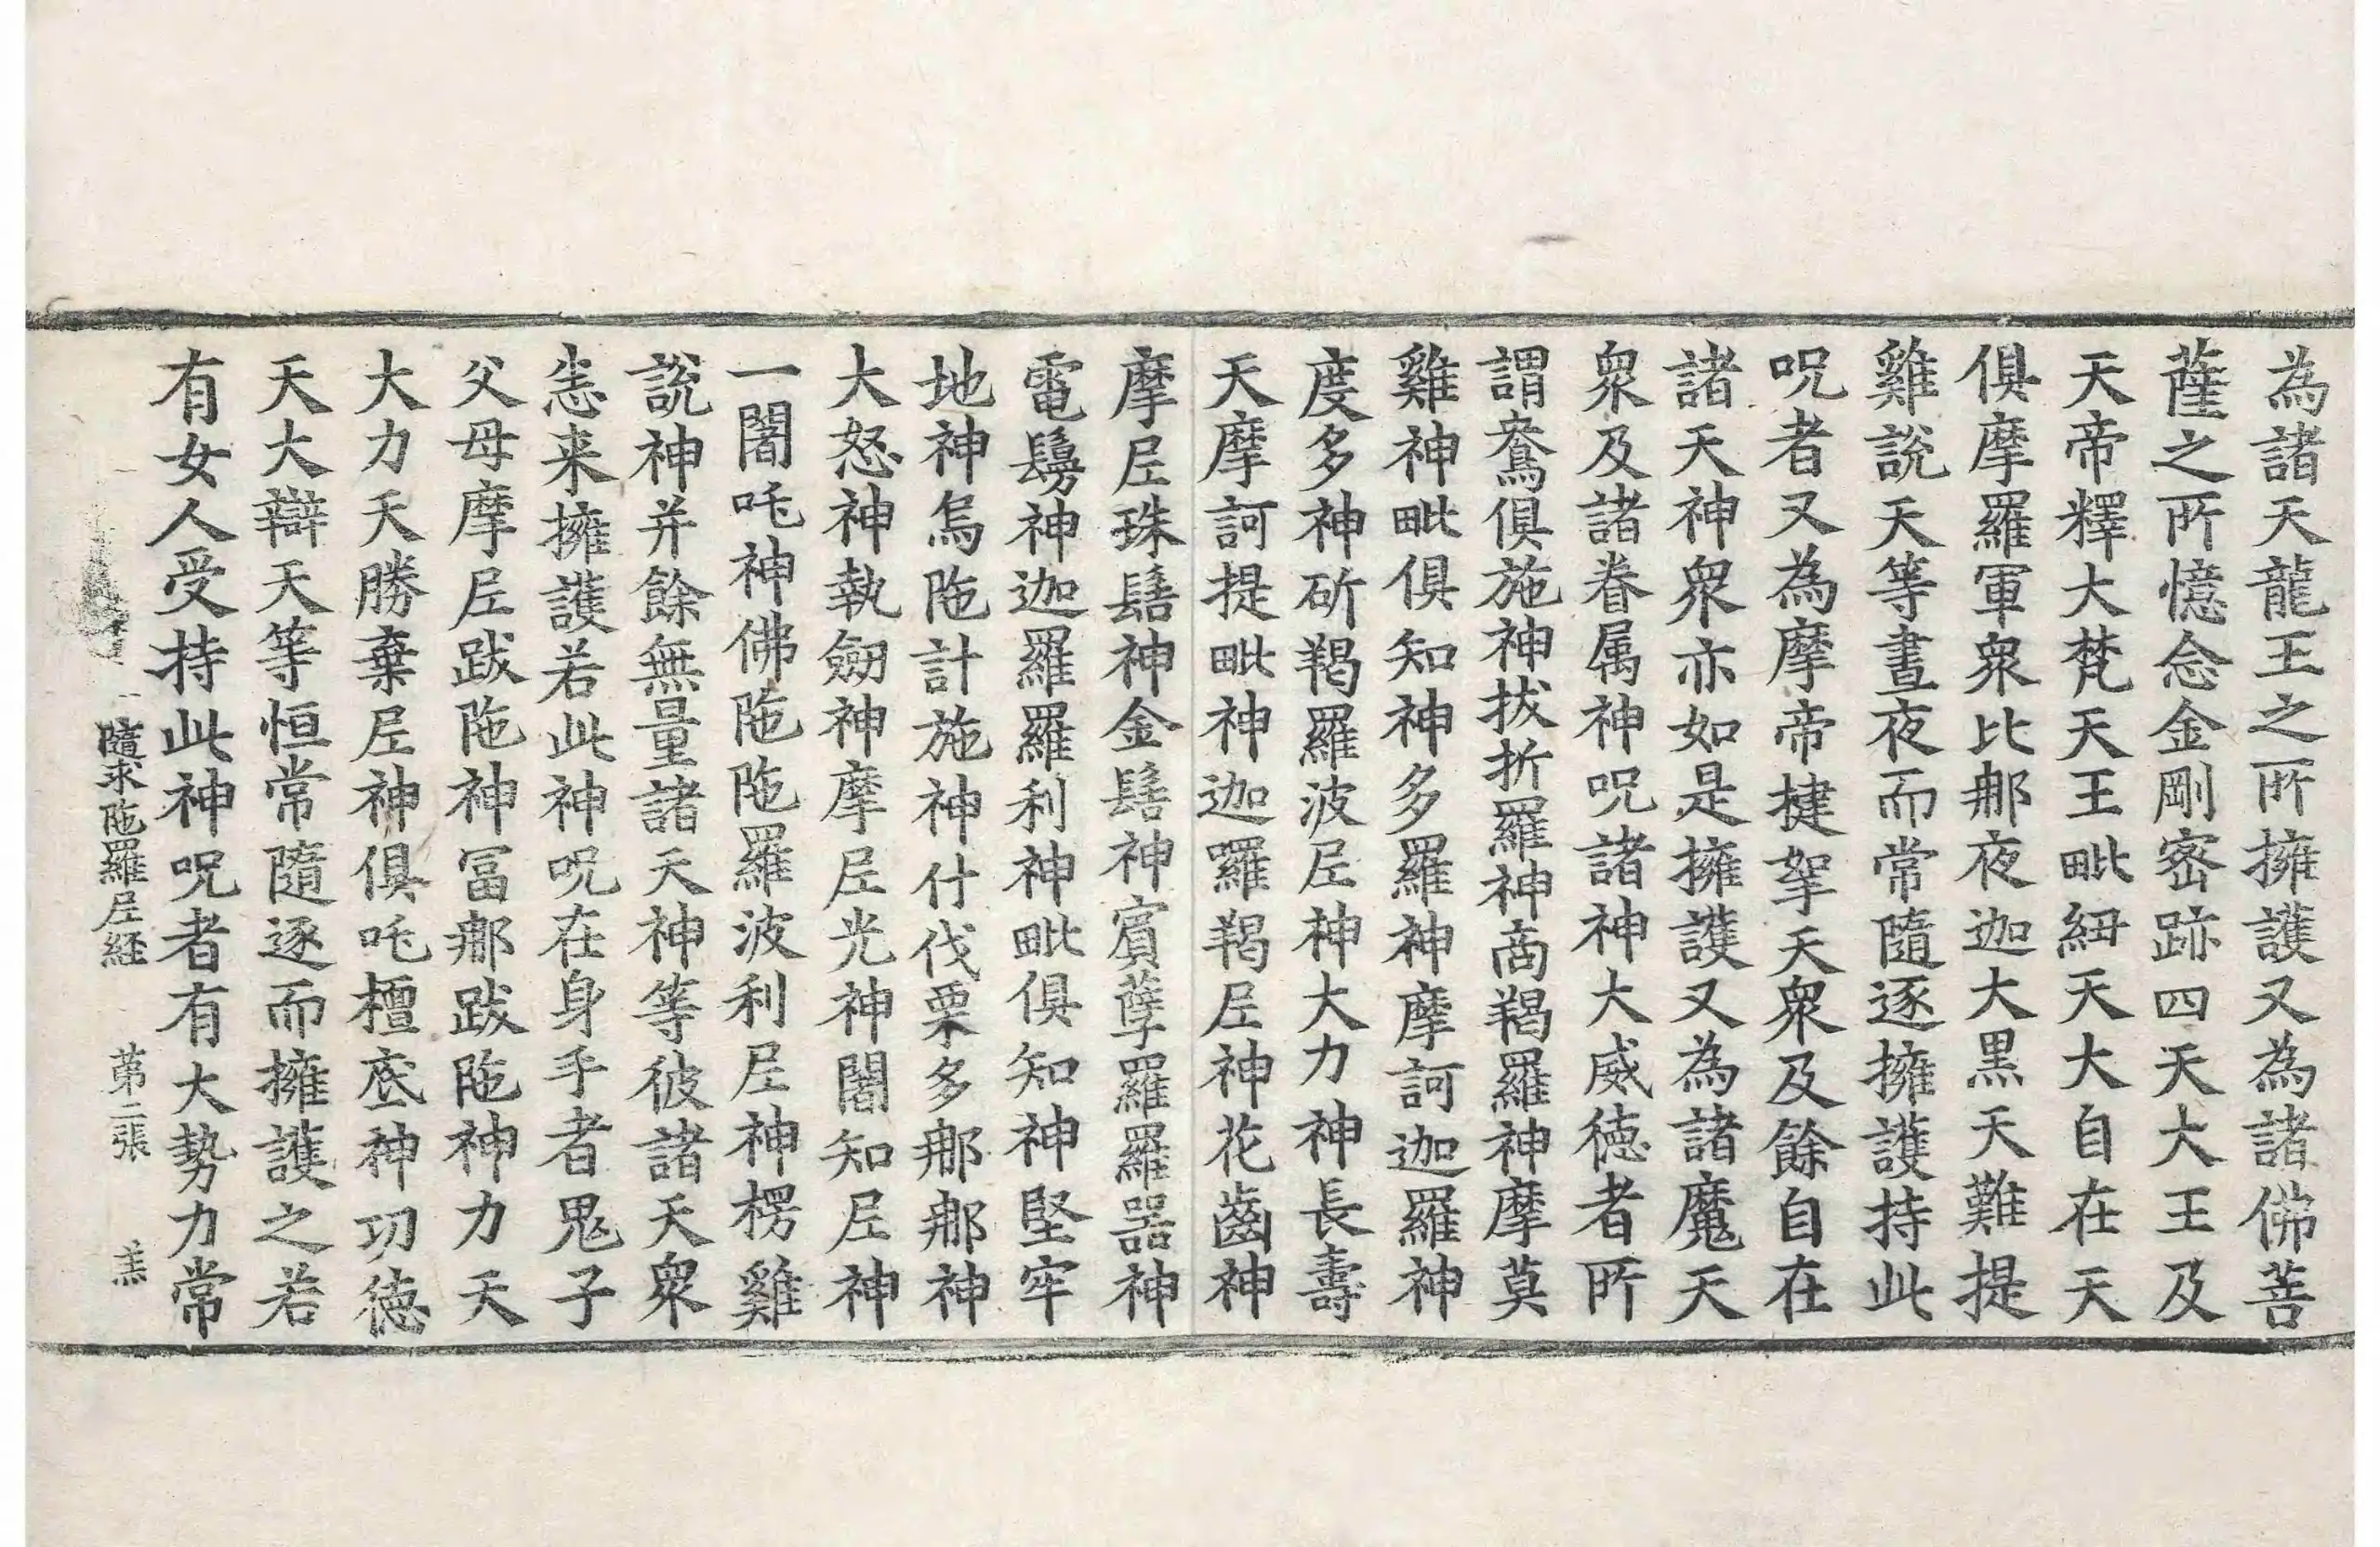 為諸天龍王之所擁護又為諸佛菩
薩之所憶念金剛密跡四天大王及
天帝釋大梵天王毗紐天大自在天
俱摩羅軍衆比那夜迦大黑天難提
雞說天等晝夜而常隨逐擁護持此
呪者又為摩帝揵拏天衆及餘自在
諸天神衆亦如是擁護又為諸魔天
衆及諸眷属神呪諸神大威德者所
謂鴦俱施神拔折羅神商羯羅神摩莫
雞神毗俱知神多羅神摩訶迦羅神
度多神斫羯羅波尼神大力神長壽
天摩訶提毗神迦囉羯尼神花齒神
摩尼珠髻神金髻神賓孽羅羅器神
電鬘神迦羅羅利神毗俱知神堅牢
地神烏陁計施神什伐栗多那那神
大怒神執劒神摩尼光神闍知尼神
一闍吒神佛陁陁羅波利尼神楞雞
說神并餘無量諸天神等彼諸天衆
恙来擁護若此神呪在身手者鬼子
父母摩尼跋陁神冨那跋陁神力天
大力天勝棄尼神俱吒檀底神功德
天大辯天等恒常隨逐而擁護之若
有女人受持此神呪者有大勢力常
隨求陁羅尼経 苐二張 羔